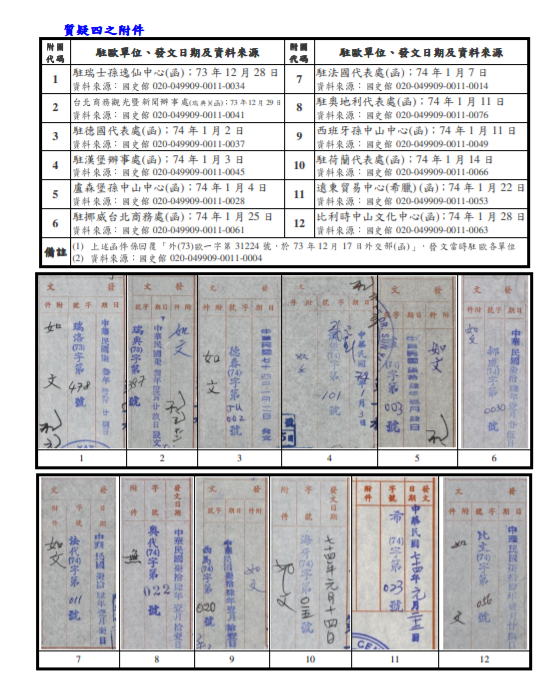 質疑四之附件
附圖代碼 駐歐單位、發文日期及資料來源 附圖代碼 駐歐單位、發文日期及資料來源
1 駐瑞士孫逸仙中心(函)；73 年 12 月 28 日
資料來源：國史館 020-049909-0011-0034
7 駐法國代表處(函)；74 年 1 月 7 日
資料來源：國史館 020-049909-0011-0014
2 台北商務觀光暨新聞辦事處(瑞典)(函)；73 年 12 月 29 日
資料來源：國史館 020-049909-0011-0041
8 駐奧地利代表處(函)；74 年 1 月 11 日
資料來源：國史館 020-049909-0011-0076
3 駐德國代表處(函)；74 年 1 月 2 日
資料來源：國史館 020-049909-0011-0037
9 西班牙孫中山中心(函)；74 年 1 月 11 日
資料來源：國史館 020-049909-0011-0049
4 駐漢堡辦事處(函)；74 年 1 月 3 日
資料來源：國史館 020-049909-0011-0045
10 駐荷蘭代表處(函)；74 年 1 月 14 日
資料來源：國史館 020-049909-0011-0066
5 盧森堡孫中山中心(函)；74 年 1 月 4 日
資料來源：國史館 020-049909-0011-0028
11 遠東貿易中心(希臘)(函)；74 年 1 月 22 日
資料來源：國史館 020-049909-0011-0053
6 駐挪威台北商務處(函)；74 年 1 月 25 日
資料來源：國史館 020-049909-0011-0061
12 比利時中山文化中心(函)；74 年 1 月 28 日
資料來源：國史館 020-049909-0011-0063
備註 (1) 上述函件係回覆「外(73)歐一字第 31224 號，於 73 年 12 月 17 日外交部(函)」，發文當時駐歐各單位
(2) 資料來源：國史館 020-049909-0011-0004
文 發
件附 號字 期日
瑞洛(73)字第 478 號
如文
1
瑞典(73)字第 號
如文
2
德春(74)字第 002 號
如文
中華民國七十四年一月二日 發文
3
101 號
中華民國 74 年 1 月 3 日
4
(74)字第 003 號
如文
5
挪威(74)字第 0030 號
6
法代(74)字第 011 號
如文
中華民國柒拾肆年壹月 日
7
附件 字號 發文日期
奧代(74)字第 022 號
中華民國柒拾肆年壹月拾壹日
8
西馬(74)字第 020 號
如文
9
附件 字號 發文日期
海牙(74)字第 號
七十四年元月十四日
10
附件 字號 發文日期
希(74)字第 023 號
中華民國七十四年元月 日
11
比文(74)字第 056 號
如文
12